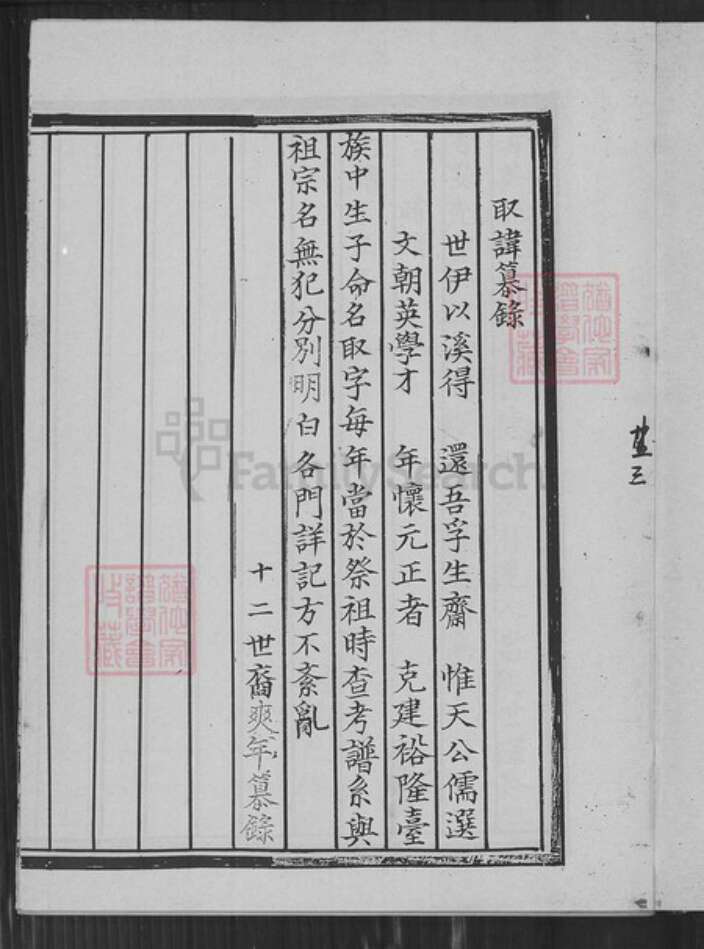 取諱纂錄
世伊以溪得 還吾孚生齋 惟天公儒選
文朝英學才 年懷元正者 克建裕隆臺
族中生子命名取字每年當於祭祖時查考譜系與
祖宗名無犯分別明白各門詳記方不紊亂
十二世裔爽年纂錄
FamilySearch